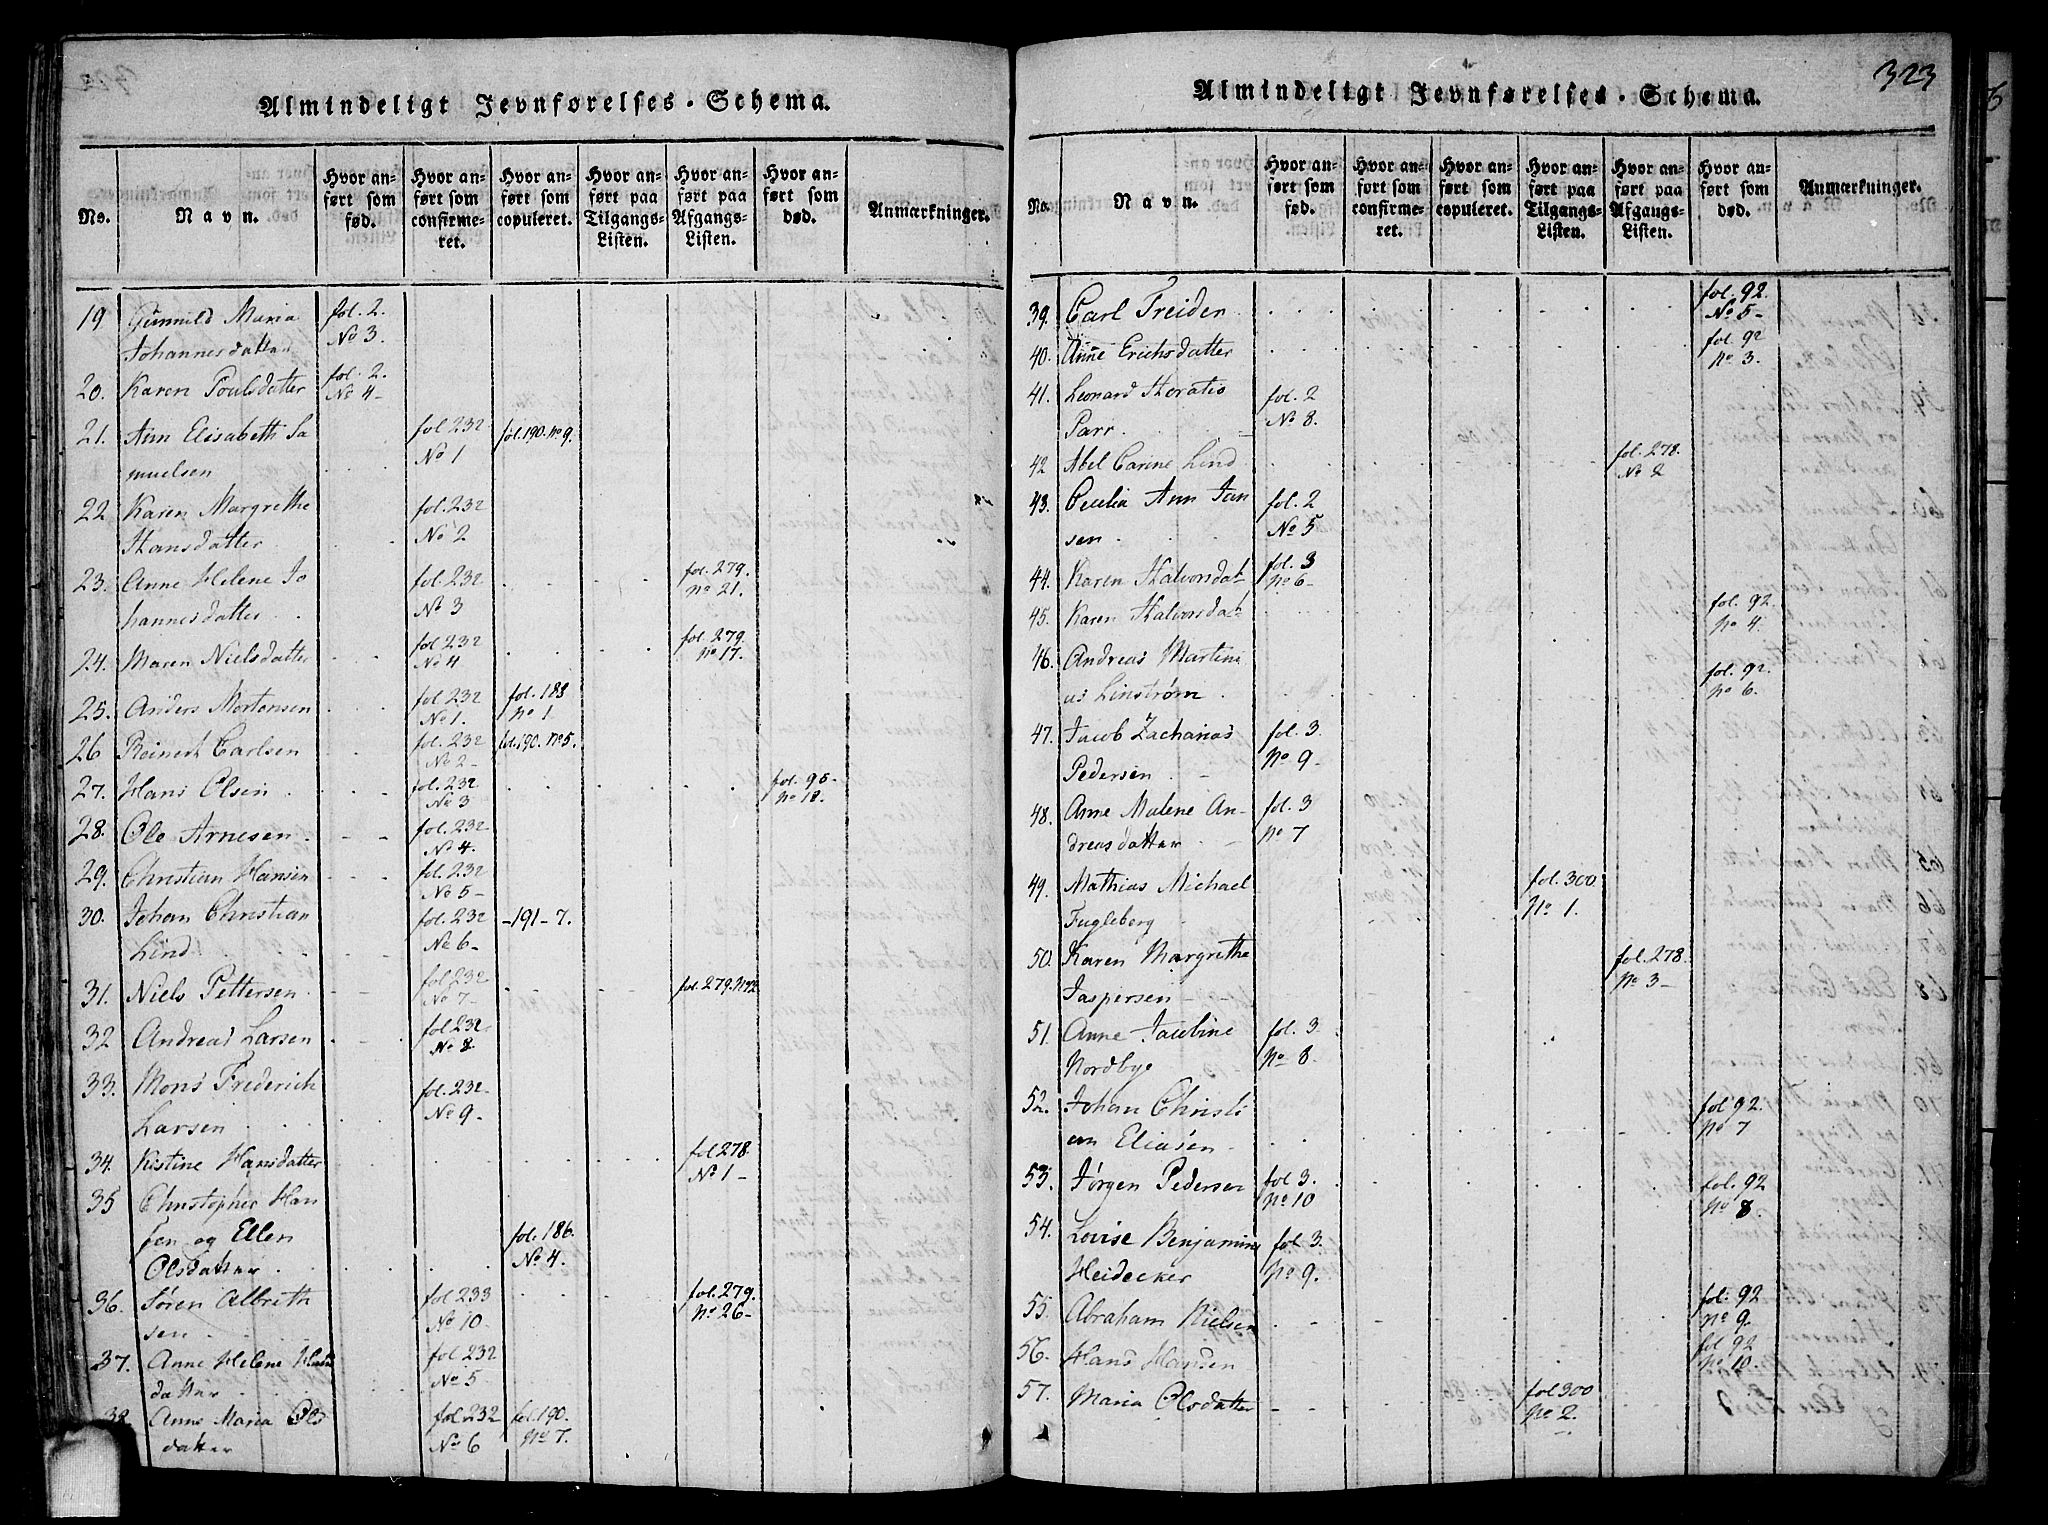 Almindeligt Jevnførelses-Schema.
No. Navn. Hvor anført som fød. Hvor anført som confirmeret. Hvor anført som copuleret. Hvor anført paa Tilgangs-Listen. Hvor anført paa Afgangs-Listen. Hvor anført som død. Anmærkninger.
19 Gunnild Maria fol. 2.
Johannesdatter No 3.
20. Karen Poulsdatter fol. 2. No 4-
21. Ann Elisabeth Sa fol 232 fol. 190. No 9.
muelsen No 1
22 Karen Margrethe fol. 232
Hansdatter No 2
23. Anne Helene Jo fol. 232 fol. 279. No 21.
hannesdatter No 3
24. Maren Nielsdatter fol. 232 No 4 fol. 279. No 17.
25. Anders Mortensen fol 232 No 1. fol. 188 No 1
26 Reinert Carlsen fol. 232 No 2- fol. 190. No 5.
27. Hans Olsen fol. 232 No 3 fol. 95- No 18.
28. Ole Arnesen fol. 232 No 4.
29. Christian Hansen fol. 232 No 5-
30. Johan Christian fol. 232 -191-7.
Lind No 6-
31. Niels Pettersen fol 232 No 7-
32 Andreas Larsen fol 232 No 8
33. Mons Frederich fol. 232
Larsen No 9-
34. Kistine Hansdatter fol 278 No 1-
35 Christopher Han
sen og Ellen fol. 186.
Olsdatter No 4.
36. Søren Albreth fol 233 fol. 279.
sen No 10- No 26-
37. Anne Helene fol 232
datter No 5
38 Anne Maria Ols fol. 232 fol. 190.
datter No 6 No 7.
323
Almindeligt Jevnførelses-Schema.
No. Navn. Hvor anført som fød. Hvor anført som confirmeret. Hvor anført som copuleret. Hvor anført paa Tilgangs-Listen. Hvor anført paa Afgangs-Listen. Hvor anført som død. Anmærkninger.
39. Carl Freider fol. 92. No 5-
40. Anne Erichsdatter fol. 92 No 3.
41. Leonard Horatio fol. 2
Parr No 8.
42 Abel Carine Lind fol. 278. No 2
43. Cecilia Ann Jan fol. 2
sen No 5
44. Karen Halvorsdat- fol. 3 No 6-
45. Karen Halvorsdat- fol. 92. No 4.
46. Andreas Martini fol. 92.
us Linstrøm No 6.
47. Jacob Zacharias fol. 3.
Pedersen No 9-
48. Anne Malene An- fol. 3
dreasdatter No 7
49. Mathias Michael fol. 300.
Fugleberg No 1.
50. Karen Margrethe fol. 278.
Jaspersen No 3-
51. Anne Pauline fol. 3.
Nordbye No 8-
52. Johan Christi fol 92.
an Eliasen No 7
53. Jørgen Pedersen fol 3. No 10 fol. 92 No 8.
54. Lovise Benjamine fol 3.
Heidecker No 9.
55. Abraham Nielsen fol. 92 No 9-
56. Hans Hansen fol 92 No 10.
57. Maria Olsdatter fol 300 No 2.